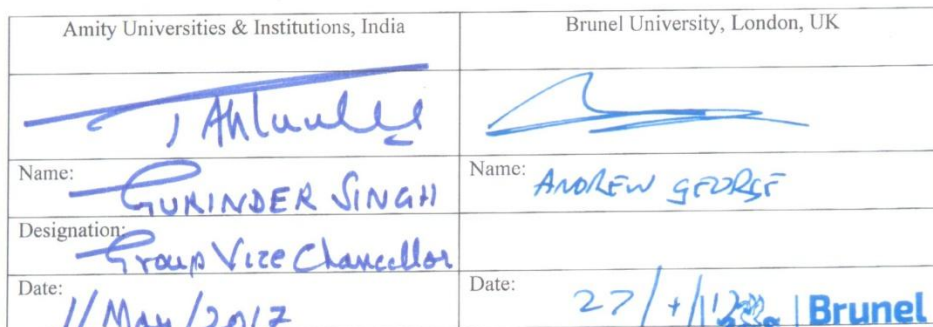 Amity Universities & Institutions, India
Brunel University, London, UK
Name: GURINDER SINGH
Name: ANDREW GEORGE
Designation: Group Vice Chancellor
Date: 11/May/2017
Date: 27/
Brunel